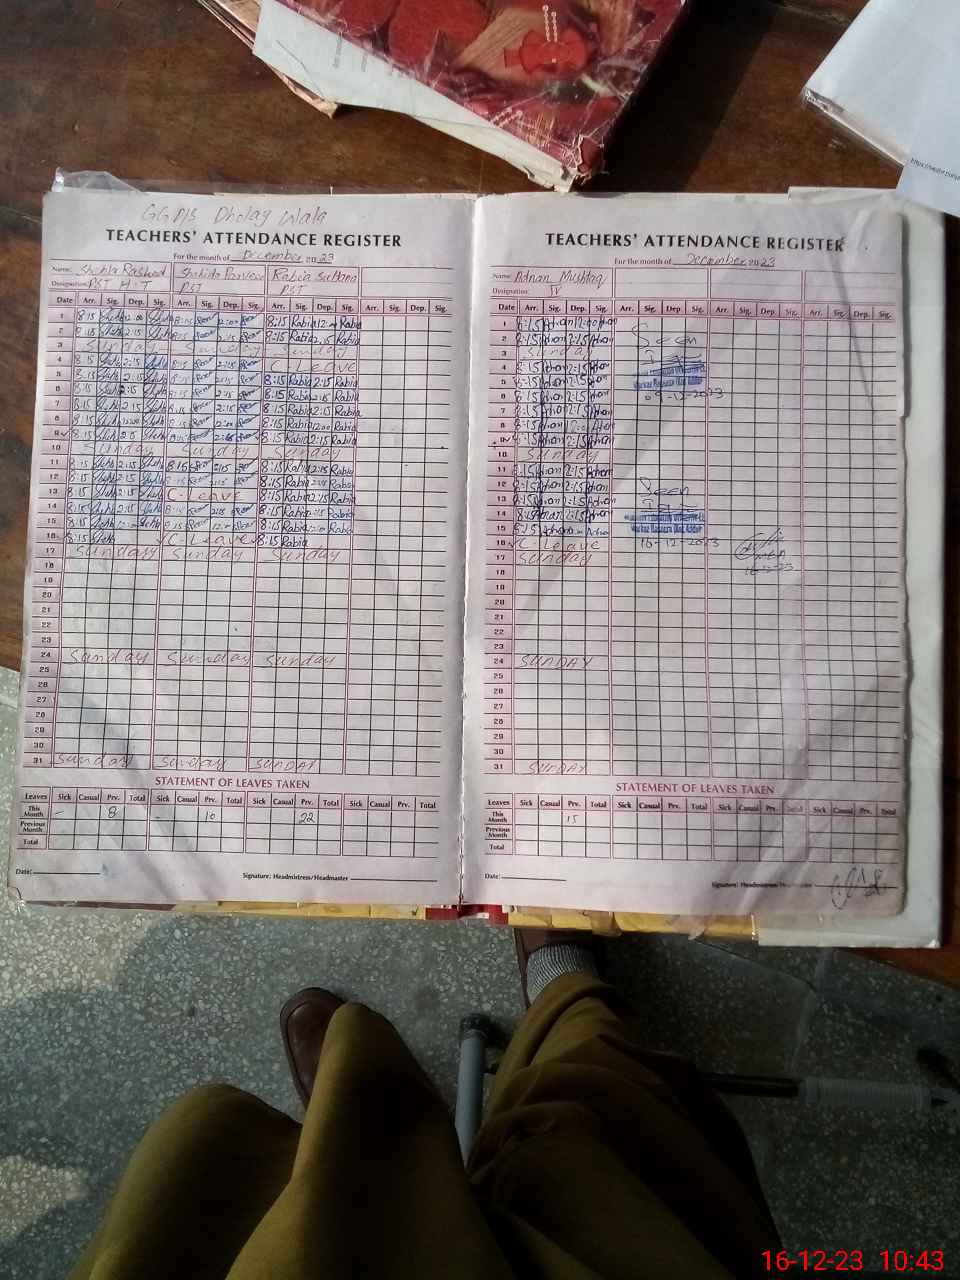 https://
GGPS Dholay Wala
TEACHERS' ATTENDANCE REGISTER
For the month of December 2023
Name: Shahla Rasheed Shahida Parveen Rabia Sultana
Designation: PST H.T PST PST
Date Arr. Sig. Dep. Sig. Arr. Sig. Dep. Sig. Arr. Sig. Dep. Sig. Arr. Sig. Dep. Sig.
1 8:15 12:00 8:15 12:00 8:15 Rabia 12:00 Rabia
2 8:15 2:15 8:15 2:15 8:15 Rabia 2:15 Rabia
3 Sunday Sunday Sunday
4 8:15 2:15 8:15 2:15 C. Leave
5 8:15 2:15 8:15 2:15 8:15 Rabia 2:15 Rabia
6 8:15 2:15 8:15 2:15 8:15 Rabia 2:15 Rabia
7 8:15 2:15 8:15 2:15 8:15 Rabia 2:15 Rabia
8 8:15 12:00 8:15 12:00 8:15 Rabia 12:00 Rabia
9 8:15 8:15 2:15 8:15 Rabia 2:15 Rabia
10 Sunday Sunday Sunday
11 8:15 2:15 8:15 2:15 8:15 Rabia 2:15 Rabia
12 8:15 2:15 8:15 2:15 8:15 Rabia 2:15 Rabia
13 8:15 2:15 C. Leave 8:15 Rabia 2:15 Rabia
14 8:15 2:15 8:15 2:15 8:15 Rabia 2:15 Rabia
15 8:15 12:00 8:15 12:00 8:15 Rabia 12:00 Rabia
16 8:15 C. Leave 8:15 Rabia
17 Sunday Sunday Sunday
18
19
20
21
22
23
24 Sunday Sunday Sunday
25
26
27
28
29
30
31 Sunday Sunday SUNDAY
STATEMENT OF LEAVES TAKEN
Leaves Sick Casual Prv. Total Sick Casual Prv. Total Sick Casual Prv. Total Sick Casual Prv. Total
This Month - 8 - 10 22
Previous Month
Total
Date:
Signature: Headmistress/Headmaster
TEACHERS' ATTENDANCE REGISTER
For the month of December 2023
Name: Adnan Mushtaq
Designation: IV
Date Arr. Sig. Dep. Sig. Arr. Sig. Dep. Sig. Arr. Sig. Dep. Sig. Arr. Sig. Dep. Sig.
1 8:15 Adnan 12:00 Adnan
2 8:15 Adnan 2:15 Adnan Seen
3 Sunday
4 8:15 Adnan 2:15 Adnan
5 8:15 Adnan 2:15 Adnan
6 8:15 Adnan 2:15 Adnan 09-12-2023
7 8:15 Adnan 2:15 Adnan
8 8:15 Adnan 12:00 Adnan
9 8:15 Adnan 2:15 Adnan
10 Sunday
11 8:15 Adnan 2:15 Adnan
12 8:15 Adnan 2:15 Adnan Seen
13 8:15 Adnan 2:15 Adnan
14 8:15 Adnan 2:15 Adnan
15 8:15 Adnan Adnan
16 C Leave 16-12-2023
17 Sunday 16-12-23
18
19
20
21
22
23
24 SUNDAY
25
26
27
28
29
30
31 SUNDAY
STATEMENT OF LEAVES TAKEN
Leaves Sick Casual Prv. Total Sick Casual Prv. Total Sick Casual Prv. Total Sick Casual Prv. Total
This Month 15
Previous Month
Total
Date:
Signature: Headmistress/Headmaster
16-12-23 10:43